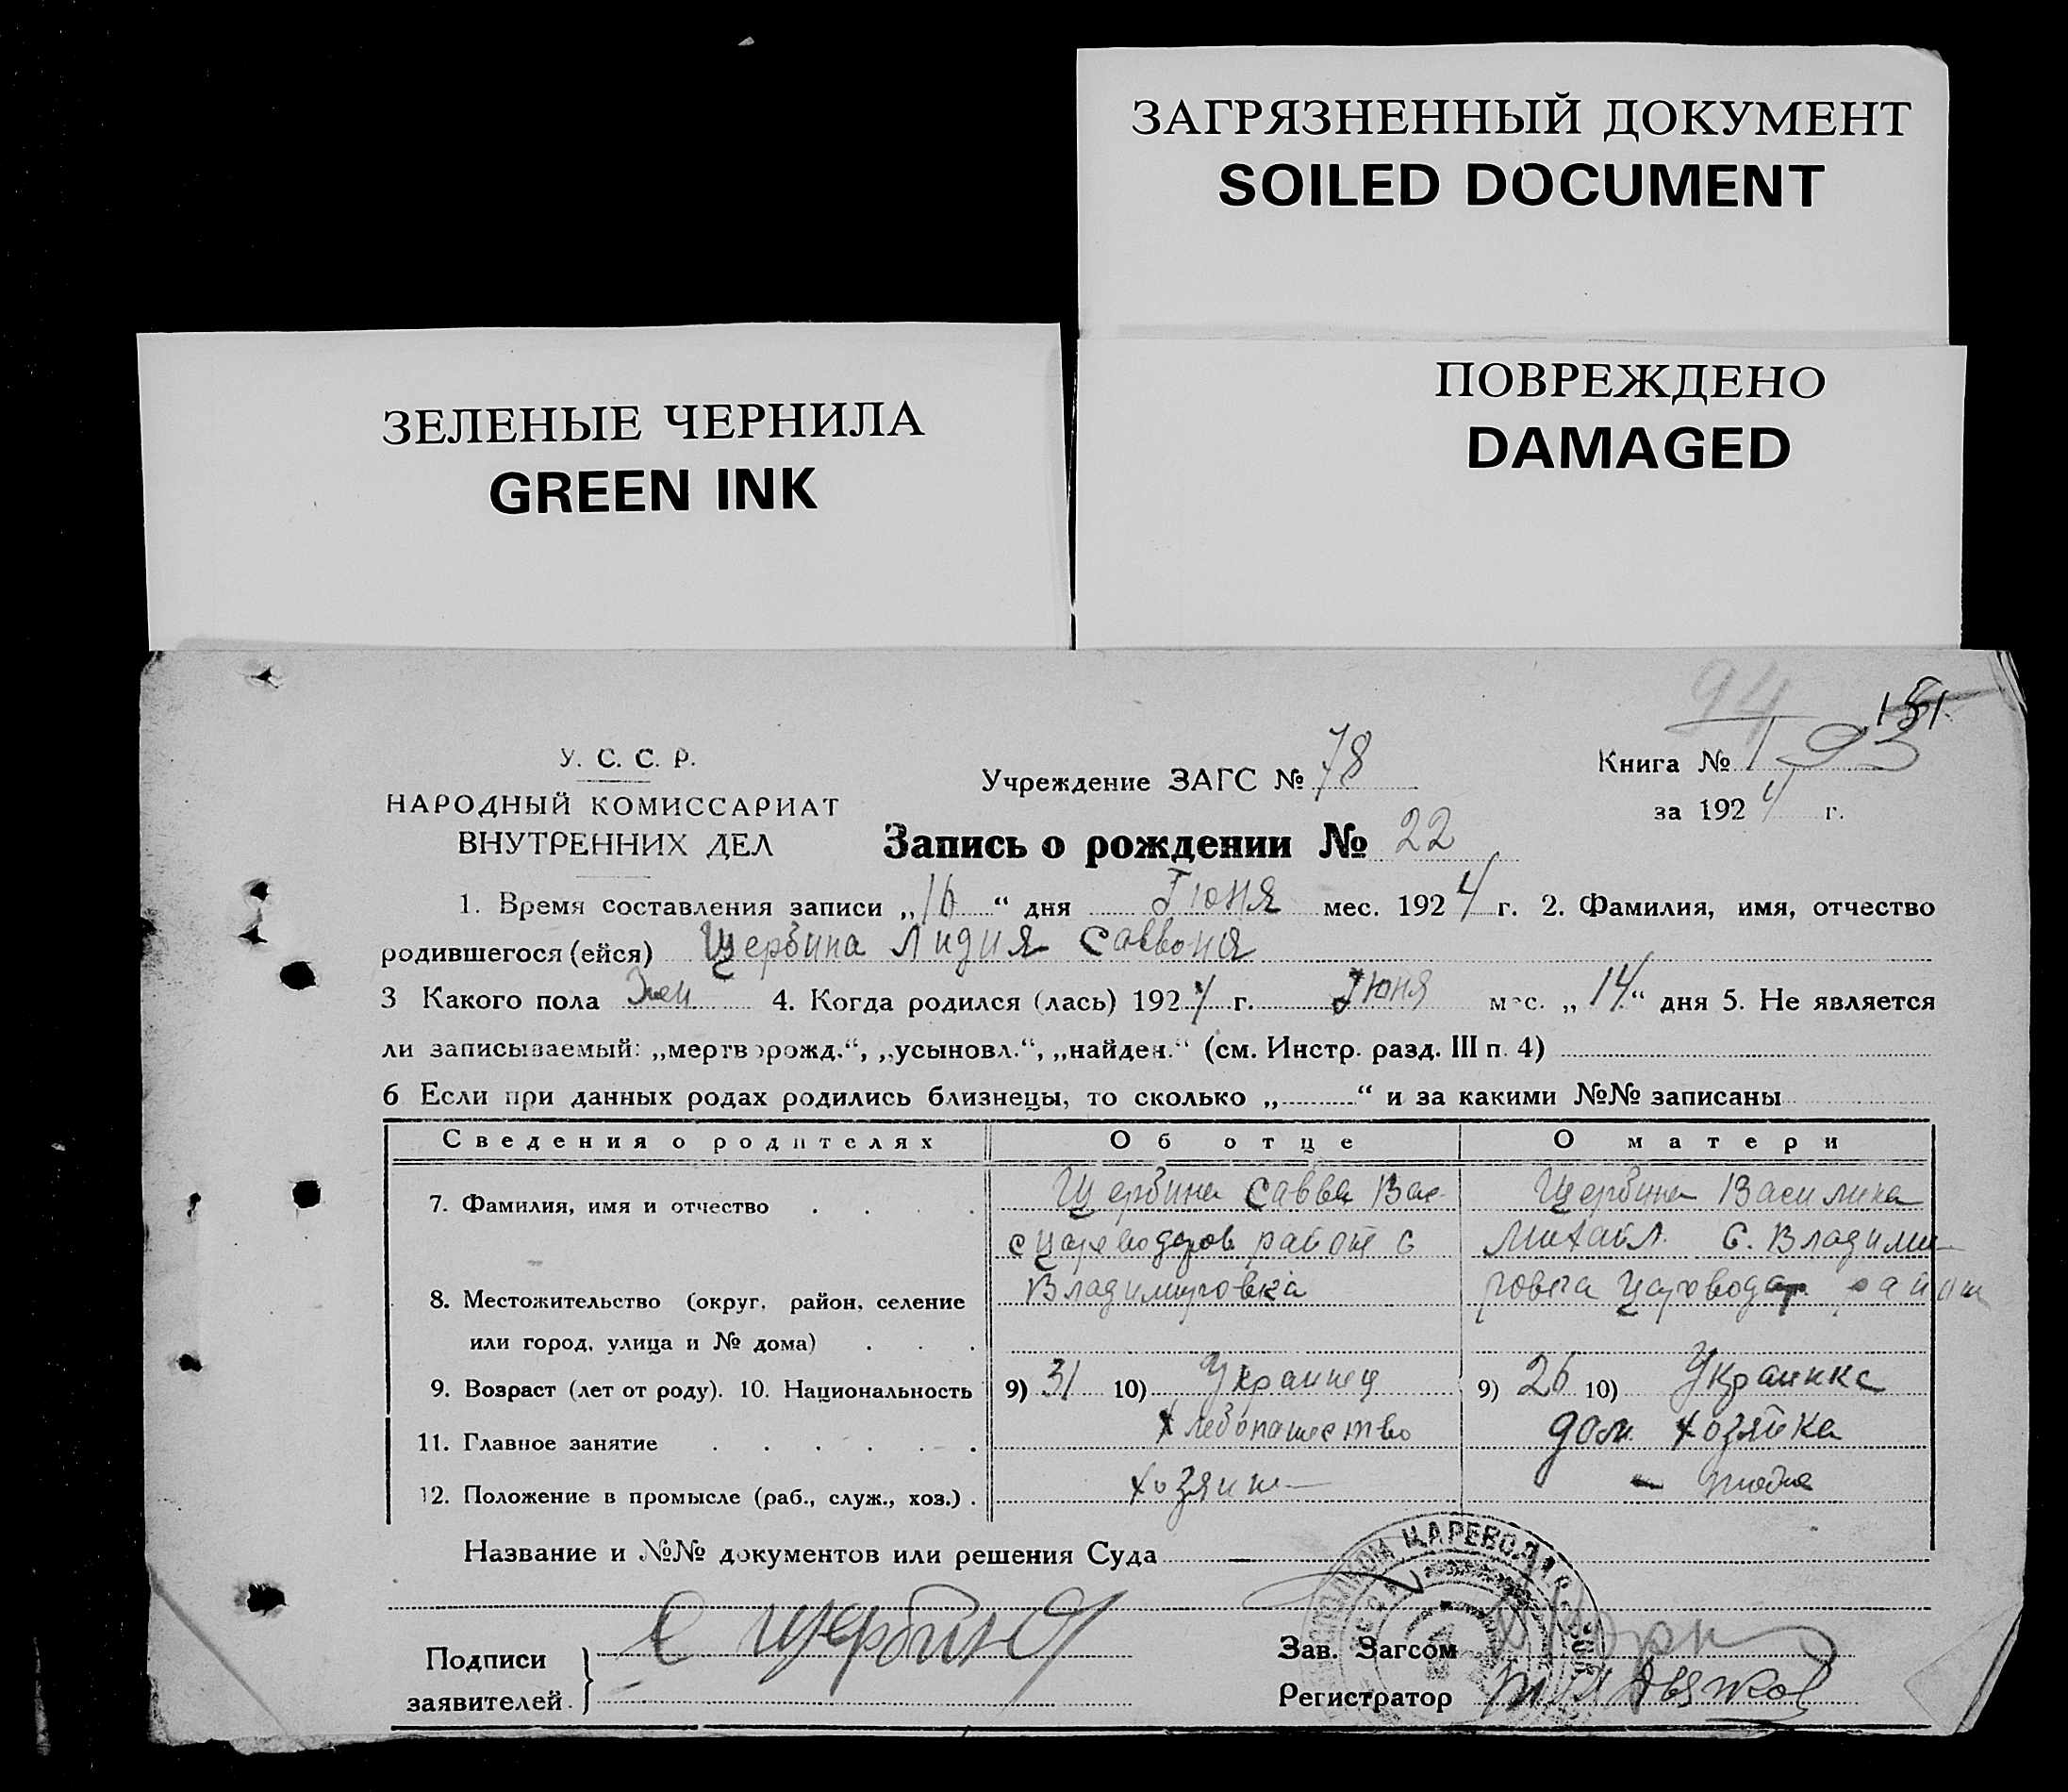 ЗАГРЯЗНЕННЫЙ ДОКУМЕНТ
SOILED DOCUMENT
ЗЕЛЕНЫЕ ЧЕРНИЛА
GREEN INK
ПОВРЕЖДЕНО
DAMAGED
94
У. С. С. Р.
НАРОДНЫЙ КОМИССАРИАТ
ВНУТРЕННИХ ДЕЛ
Учреждение ЗАГС № 78
Книга № 1 93
за 1924 г.
Запись о рождении № 22
1. Время составления записи „16“ дня Июня мес. 1924 г. 2. Фамилия, имя, отчество
родившегося (ейся) Щербина Лидия Саввоня
3 Какого пола Жен 4. Когда родился (лась) 1924 г. Июня мес. „14“ дня 5. Не является
ли записываемый: „мертворожд.“, „усыновл.“, „найден.“ (см. Инстр. разд. III п. 4)
6 Если при данных родах родились близнецы, то сколько „ “ и за какими №№ записаны
Сведения о родителях Об отце О матери
7. Фамилия, имя и отчество Щербина Савва Вас Щербина Василиса
Михайл. С. Владими-
8. Местожительство (округ, район, селение или город, улица и № дома) Владимировка ровка Цареводар район
9. Возраст (лет от роду). 10. Национальность 9) 31 10) Украинец 9) 26 10) Украинка
11. Главное занятие Хлебопашество дом хозяйка
12. Положение в промысле (раб., служ., хоз.) хозяин
Название и №№ документов или решения Суда —
Подписи заявителей С Щербина
Зав. Загсом
Регистратор